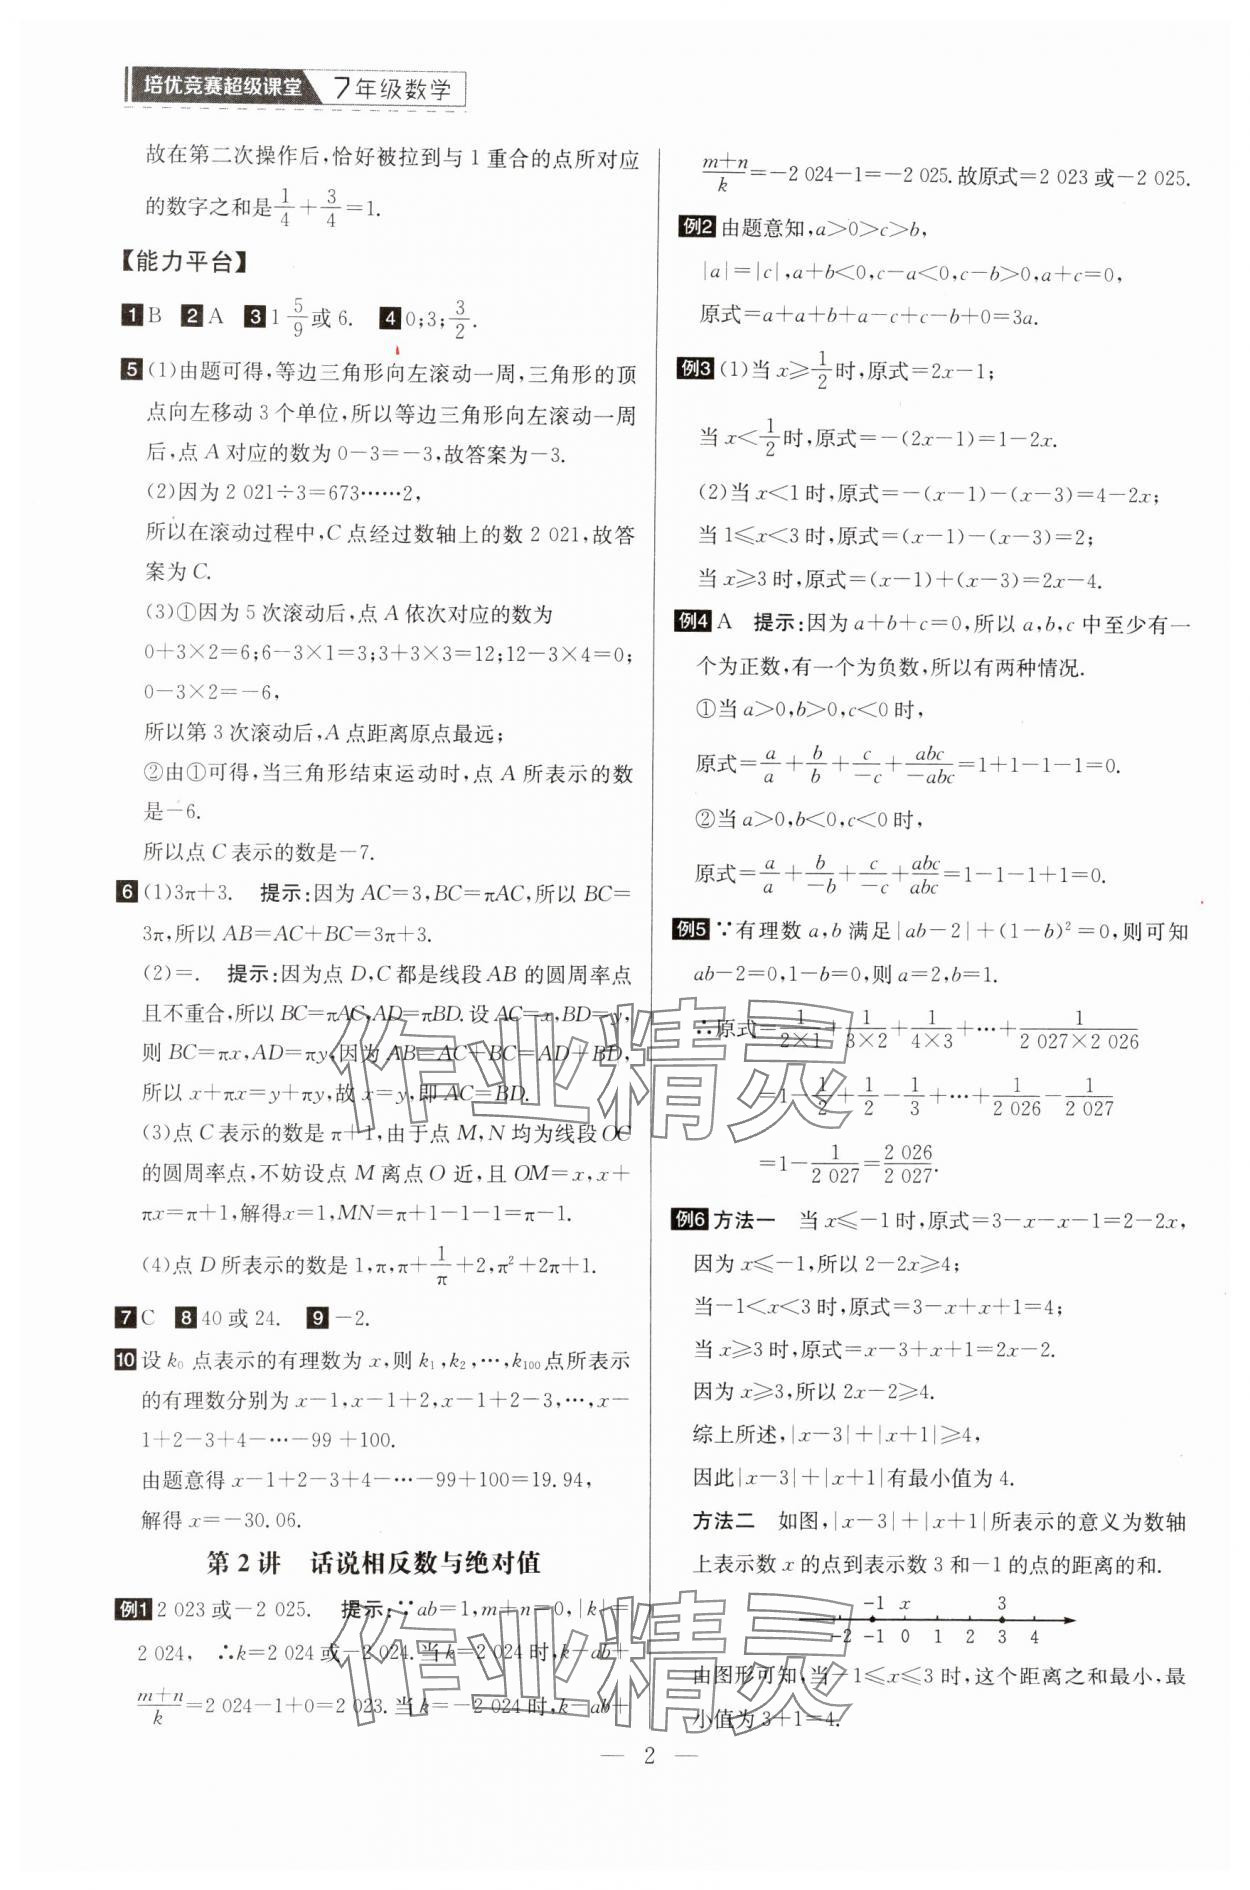 培优竞赛超级课堂 7年级数学
故在第二次操作后,恰好被拉到与1重合的点所对应
的数字之和是1/4+3/4=1.
【能力平台】
1 B 2 A 3 1 5/9或6. 4 0;3;3/2.
5 (1)由题可得,等边三角形向左滚动一周,三角形的顶
点向左移动3个单位,所以等边三角形向左滚动一周
后,点A对应的数为0-3=-3,故答案为-3.
(2)因为2 021÷3=673……2,
所以在滚动过程中,C点经过数轴上的数2 021,故答
案为C.
(3)①因为5次滚动后,点A依次对应的数为
0+3×2=6;6-3×1=3;3+3×3=12;12-3×4=0;
0-3×2=-6,
所以第3次滚动后,A点距离原点最远;
②由①可得,当三角形结束运动时,点A所表示的数
是-6.
所以点C表示的数是-7.
6 (1)3π+3. 提示:因为AC=3,BC=πAC,所以BC=
3π,所以AB=AC+BC=3π+3.
(2)=. 提示:因为点D,C都是线段AB的圆周率点
且不重合,所以BC=πAC,AD=πBD.设AC=x,BD=y,
则BC=πx,AD=πy,因为AB=AC+BC=AD+BD,
所以x+πx=y+πy,故x=y,即AC=BD.
(3)点C表示的数是π+1,由于点M,N均为线段OC
的圆周率点,不妨设点M离点O近,且OM=x,x+
πx=π+1,解得x=1,MN=π+1-1-1=π-1.
(4)点D所表示的数是1,π,π+1/π+2,π²+2π+1.
7 C 8 40或24. 9 -2.
10 设k₀点表示的有理数为x,则k₁,k₂,…,k₁₀₀点所表示
的有理数分别为x-1,x-1+2,x-1+2-3,…,x-
1+2-3+4-…-99+100.
由题意得x-1+2-3+4-…-99+100=19.94,
解得x=-30.06.
第2讲 话说相反数与绝对值
例1 2 023或-2 025. 提示:∵ab=1,m+n=0,|k|=
2 024, ∴k=2 024或-2 024.当k=2 024时,k-ab+
(m+n)/k=2 024-1+0=2 023.当k=-2 024时,k-ab+
(m+n)/k=-2 024-1=-2 025.故原式=2 023或-2 025.
例2 由题意知,a>0>c>b,
|a|=|c|,a+b<0,c-a<0,c-b>0,a+c=0,
原式=a+a+b+a-c+c-b+0=3a.
例3 (1)当x≥1/2时,原式=2x-1;
当x<1/2时,原式=-(2x-1)=1-2x.
(2)当x<1时,原式=-(x-1)-(x-3)=4-2x;
当1≤x<3时,原式=(x-1)-(x-3)=2;
当x≥3时,原式=(x-1)+(x-3)=2x-4.
例4 A 提示:因为a+b+c=0,所以a,b,c中至少有一
个为正数,有一个为负数,所以有两种情况.
①当a>0,b>0,c<0时,
原式=a/a+b/b+c/-c+abc/-abc=1+1-1-1=0.
②当a>0,b<0,c<0时,
原式=a/a+b/-b+c/-c+abc/abc=1-1-1+1=0.
例5 ∵有理数a,b满足|ab-2|+(1-b)²=0,则可知
ab-2=0,1-b=0,则a=2,b=1.
∴原式=1/(2×1)+1/(3×2)+1/(4×3)+…+1/(2 027×2 026)
=1-1/2+1/2-1/3+…+1/2 026-1/2 027
=1-1/2 027=2 026/2 027.
例6 方法一 当x≤-1时,原式=3-x-x-1=2-2x,
因为x≤-1,所以2-2x≥4;
当-1<x<3时,原式=3-x+x+1=4;
当x≥3时,原式=x-3+x+1=2x-2.
因为x≥3,所以2x-2≥4.
综上所述,|x-3|+|x+1|≥4,
因此|x-3|+|x+1|有最小值为4.
方法二 如图,|x-3|+|x+1|所表示的意义为数轴
上表示数x的点到表示数3和-1的点的距离的和.
-1 x 3
-2 -1 0 1 2 3 4
由图形可知,当-1≤x≤3时,这个距离之和最小,最
小值为3+1=4.
— 2 —
作业精灵
作业精灵